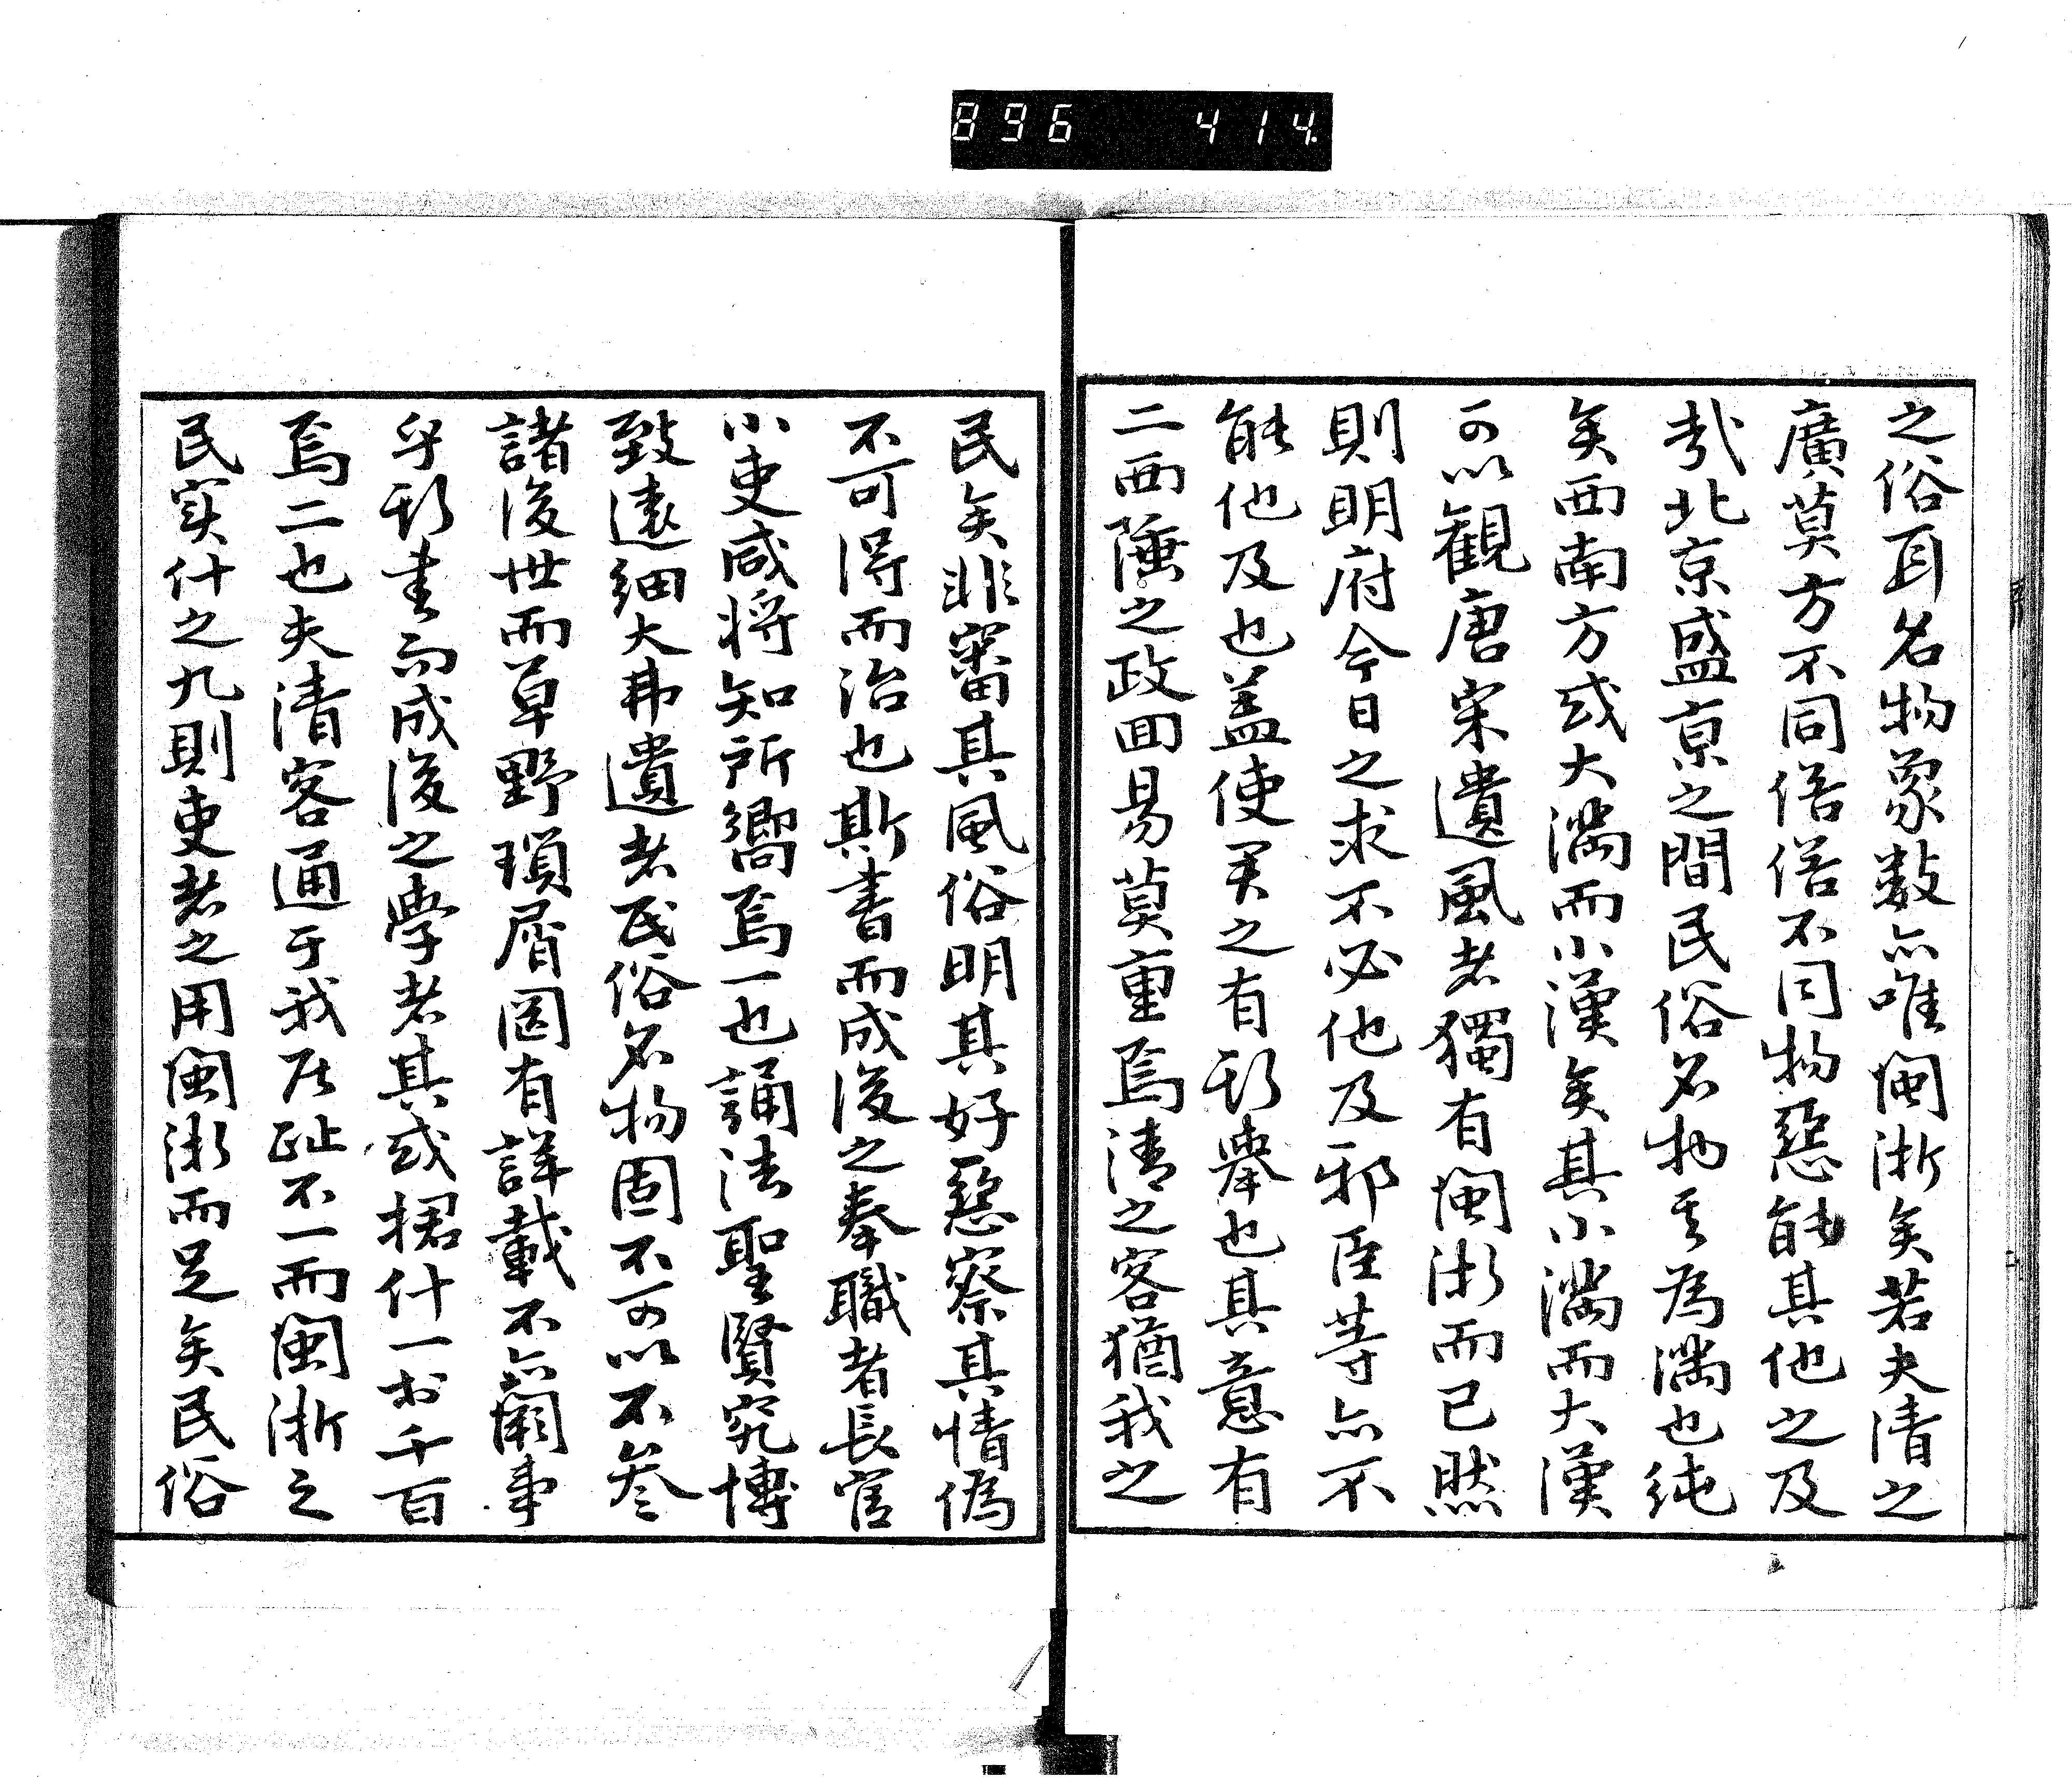 896 414
之俗耳名物象数亦唯閩浙矣若夫清之
廣莫方不同俗俗不同物惡能其他之及
哉北京盛京之間民俗名物之為滿也純
矣西南方或大滿而小漢矣其小滿而大漢
可以觀唐宋遺風者獨有閩浙而已然
則明府今日之求不必他及邪臣等亦不
能他及也蓋使君之有斯舉也其意有
二西陲之政回易莫重焉清之客猶我之
民矣非審其風俗明其好惡察其情偽
不可得而治也斯書而成後之奉職者長官
小吏咸將知所嚮焉一也誦法聖賢究博
致遠細大弗遺者民俗名物固不可以不參
諸後世而草野瑣屑固有詳載不亦闕事
乎斯書而成後之學者其或捃什一於千百
焉二也夫清客通于我居址不一而閩浙之
民実什之九則吏者之用閩浙而足矣民俗